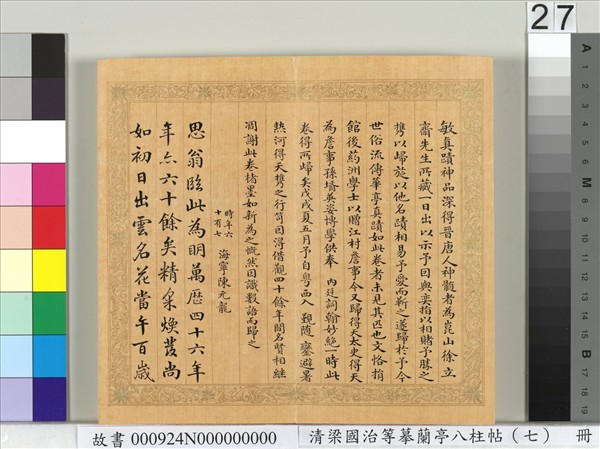 敏真蹟神品深得晉唐人神髓者為崑山徐立
齋先生所藏一日出以示予因與奕指以相賭予勝之
攜以歸旋以他名蹟相易予愛而靳之遂歸於予今
世俗流傳華亭真蹟如此卷者未見其匹也文恪捐
館後葯洲學士以贈江村詹事今又歸得天太史得天
為詹事孫壻英姿博學供奉 內廷詞翰妙絕一時此
卷得所歸矣戊戌夏五月予自粵西入覲隨 鑾避暑
熱河得天攜之行笥因得借觀四十餘年間名賢相繼
凋謝此卷楮墨如新為之慨然因識數語而歸之
時年六
十有七
海寧陳元龍
思翁臨此為明萬曆四十六年
年六十餘矣精采煥發尚
如初日出雲名花當午百歲
27
A 1 2 3 4 5 6 M 8 9 10 11 12 13 14 15 B 17 18 19
故書 000924N000000000
清梁國治等摹蘭亭八柱帖（七） 冊